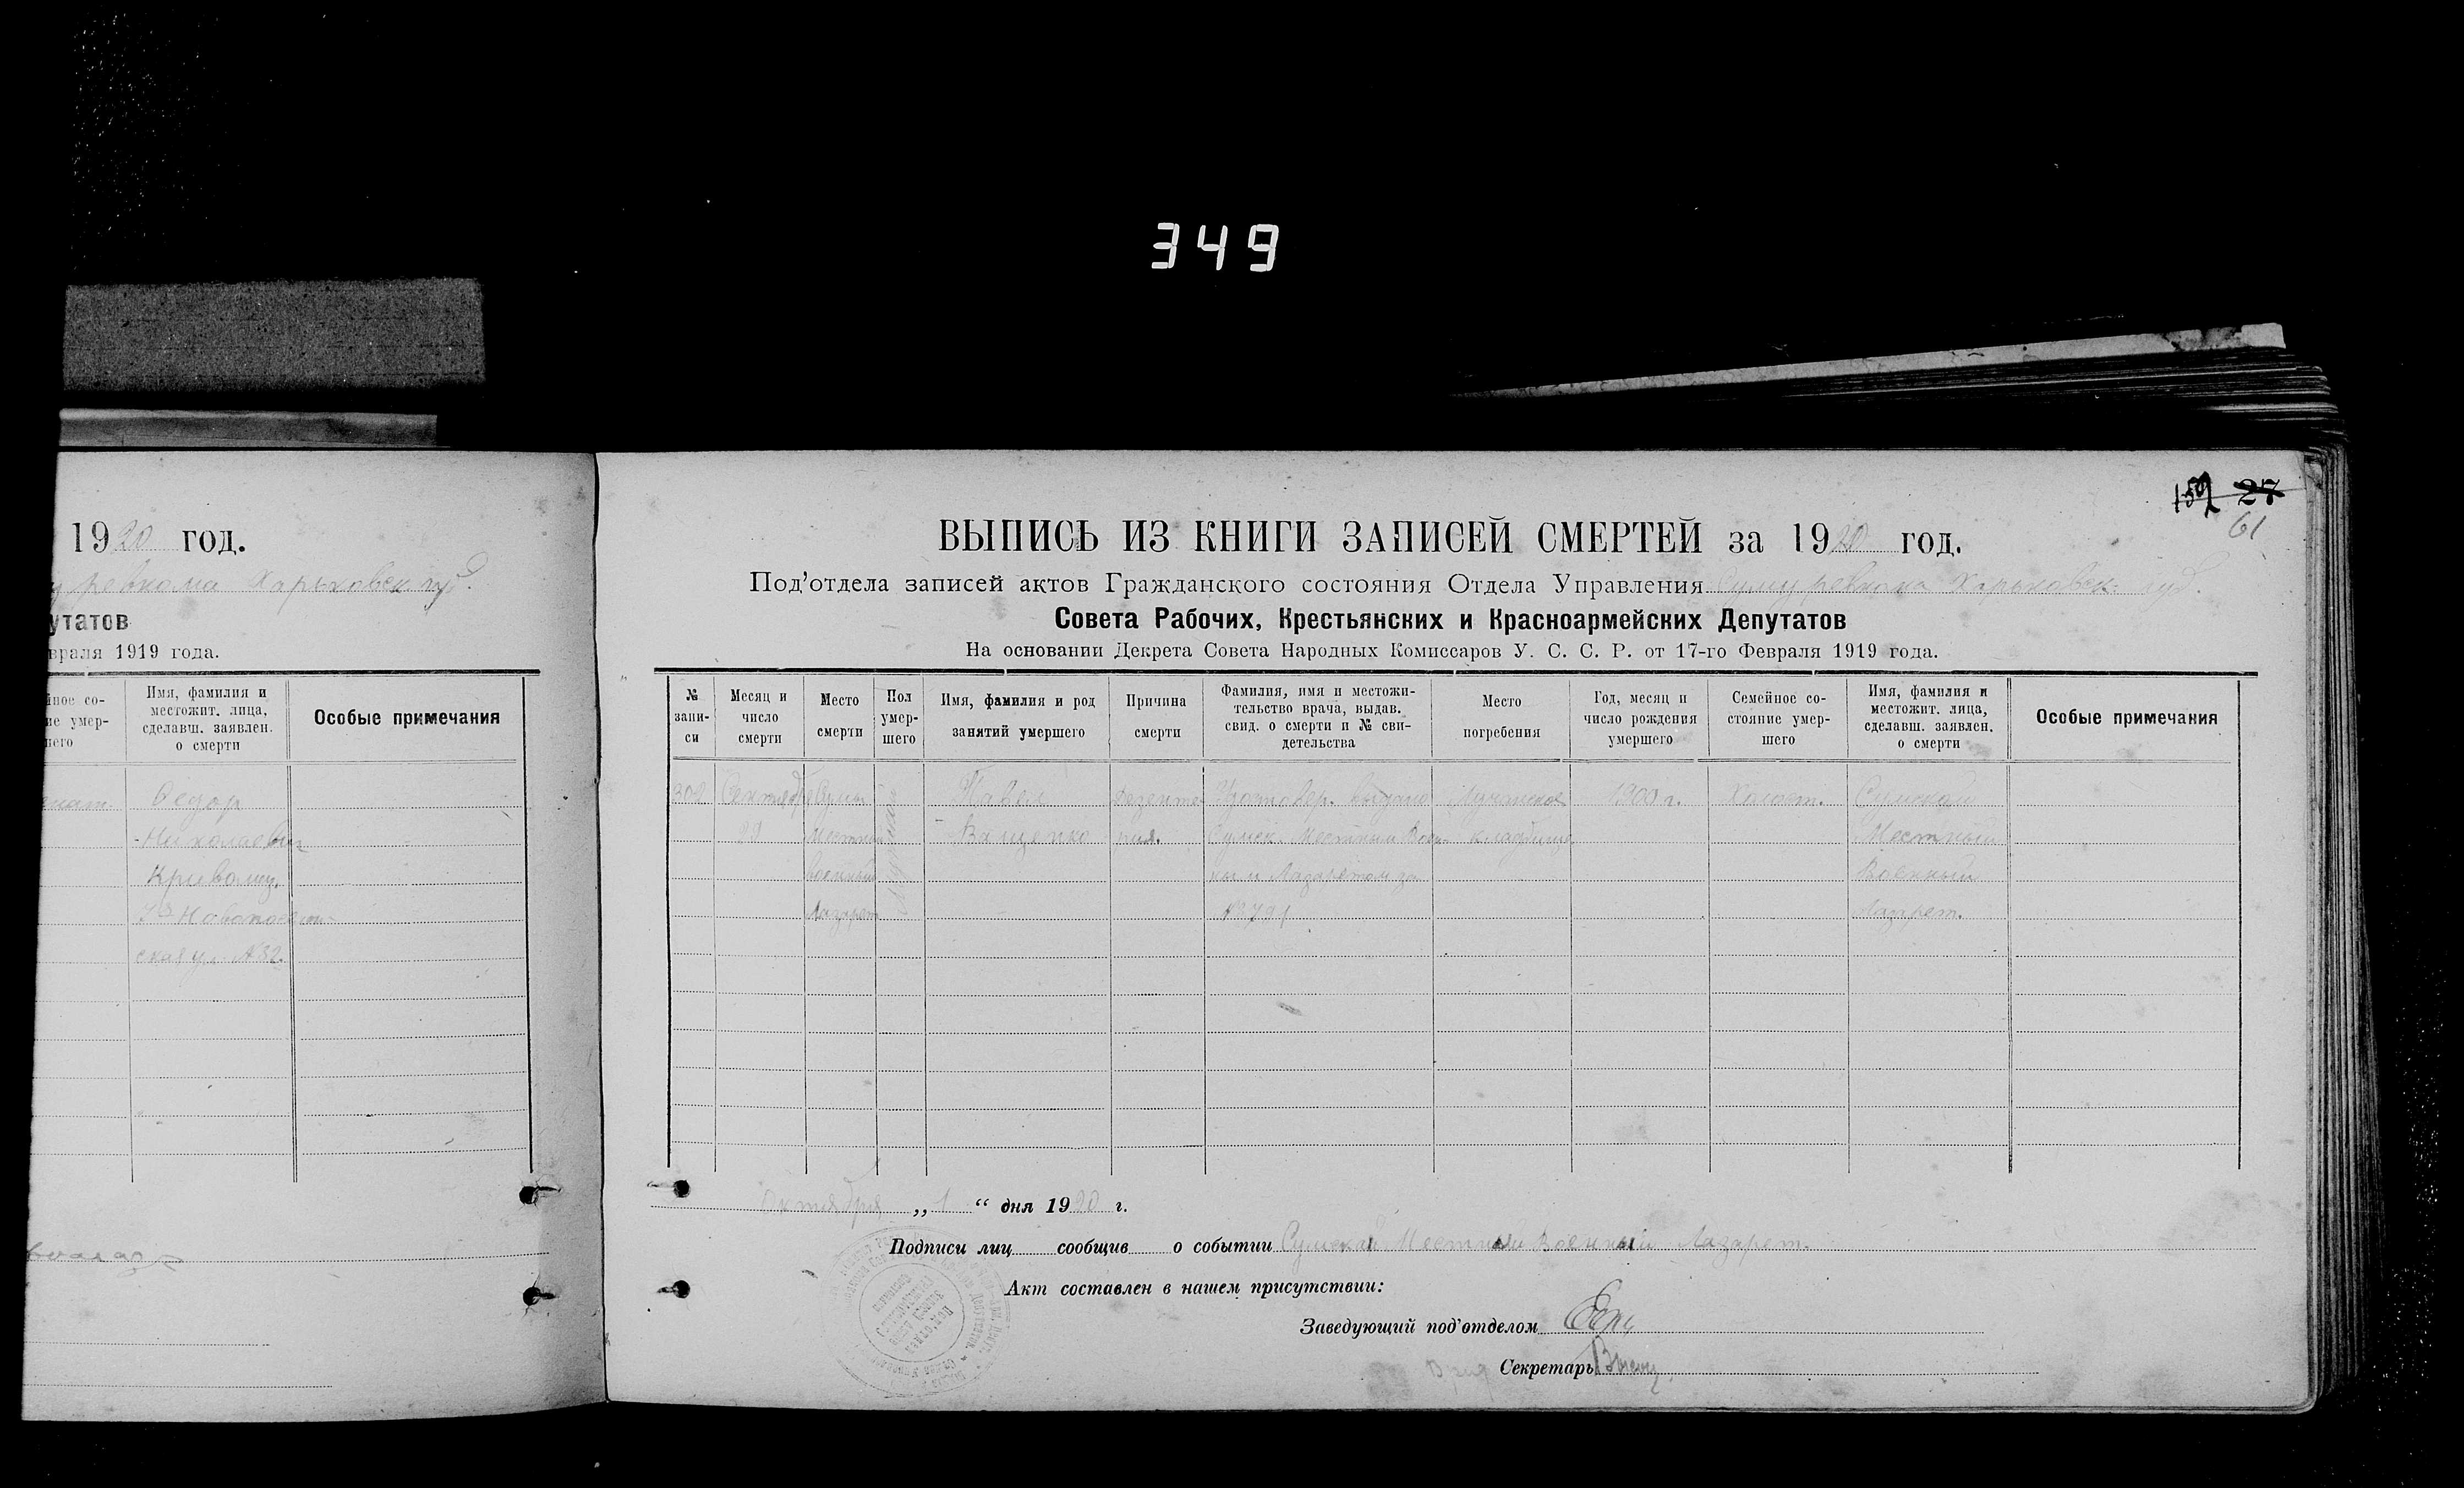 349
27
61
1920 год.
ревкома Харьковск. губ.
утатов
враля 1919 года.
Имя, фамилия и
местожит. лица,
сделавш. заявлен.
о смерти
Особые примечания
Федор
Николаевич
№ 32.
ВЫПИСЬ ИЗ КНИГИ ЗАПИСЕЙ СМЕРТЕЙ за 1920 год.
Под'отдела записей актов Гражданского состояния Отдела Управления Сумуревкома Харьковск. губ.
Совета Рабочих, Крестьянских и Красноармейских Депутатов
На основании Декрета Совета Народных Комиссаров У. С. С. Р. от 17-го Февраля 1919 года.
№
запи-
си
Месяц и
число
смерти
Место
смерти
Пол
умер-
шего
Имя, фамилия и род
занятий умершего
Причина
смерти
Фамилия, имя и местожи-
тельство врача, выдав.
свид. о смерти и № сви-
детельства
Место
погребения
Год, месяц и
число рождения
умершего
Семейное со-
стояние умер-
шего
Имя, фамилия и
местожит. лица,
сделавш. заявлен.
о смерти
Особые примечания
Сентября
Сумы
Местный
Военный
Лазарет
Павел
Ващенко
дизенте
рия.
Удостовер. выдано
Сумск. Местным Воен-
ным Лазаретом за
Лучанское
кладбище
Холост.
Сумской
Местный
Военный
Лазарет.
Октября „ 1 “ дня 1920 г.
Подписи лиц сообщив о событии Сумской Местный Военный Лазарет.
Акт составлен в нашем присутствии:
Заведующий под'отделом
Секретарь